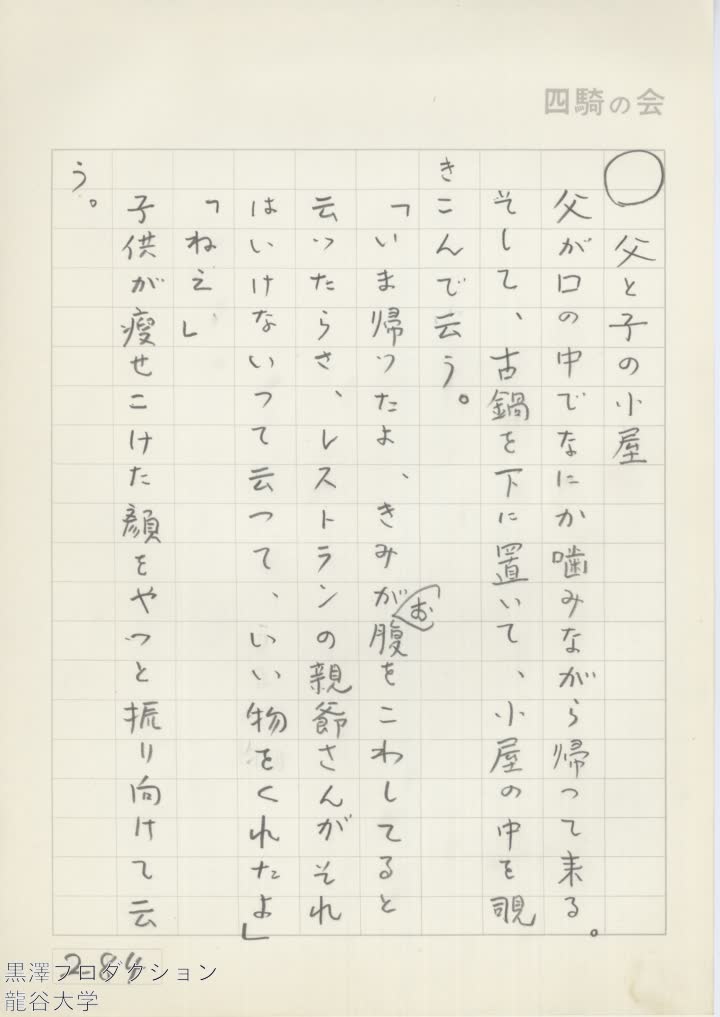 四騎の会
○ 父と子の小屋
父が口の中でなにか噛みながら帰って来る。
そして、古鍋を下に置いて、小屋の中を覗
きこんで云う。
「いま帰ったよ、きみがお腹をこわしてると
云ったらさ、レストランの親爺さんがそれ
はいけないって云って、いい物をくれたよ」
「ねえ」
子供が瘦せこけた顔をやっと振り向けて云
う。
284
黒澤プロダクション
龍谷大学